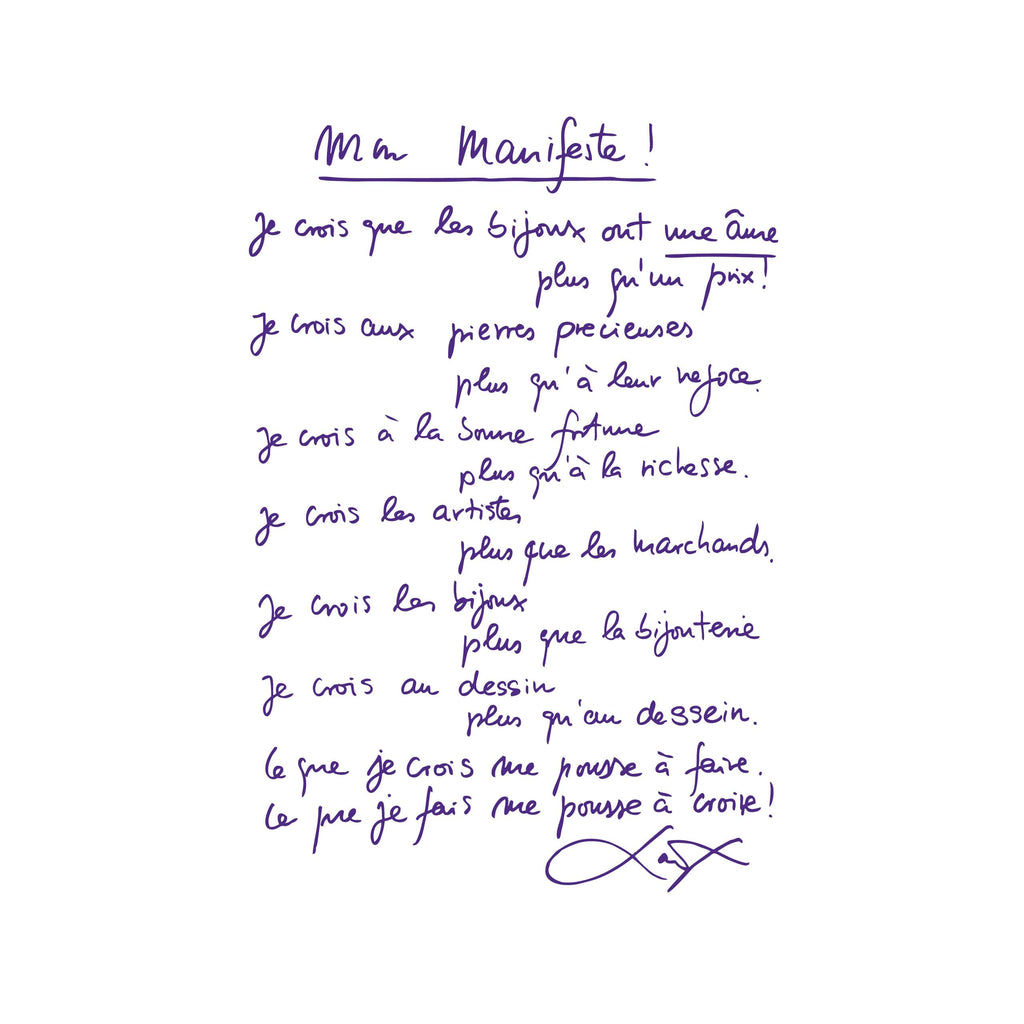 Mon Manifeste !
Je crois que les bijoux ont une âme
plus qu'un prix !
Je crois aux pierres precieuses
plus qu'à leur negoce.
Je crois à la bonne fortune
plus qu'à la richesse.
Je crois les artistes
plus que les marchands.
Je crois les bijoux
plus que la bijouterie
Je crois au dessin
plus qu'au dessein.
Ce que je crois me pousse à faire.
Ce que je fais me pousse à croire !